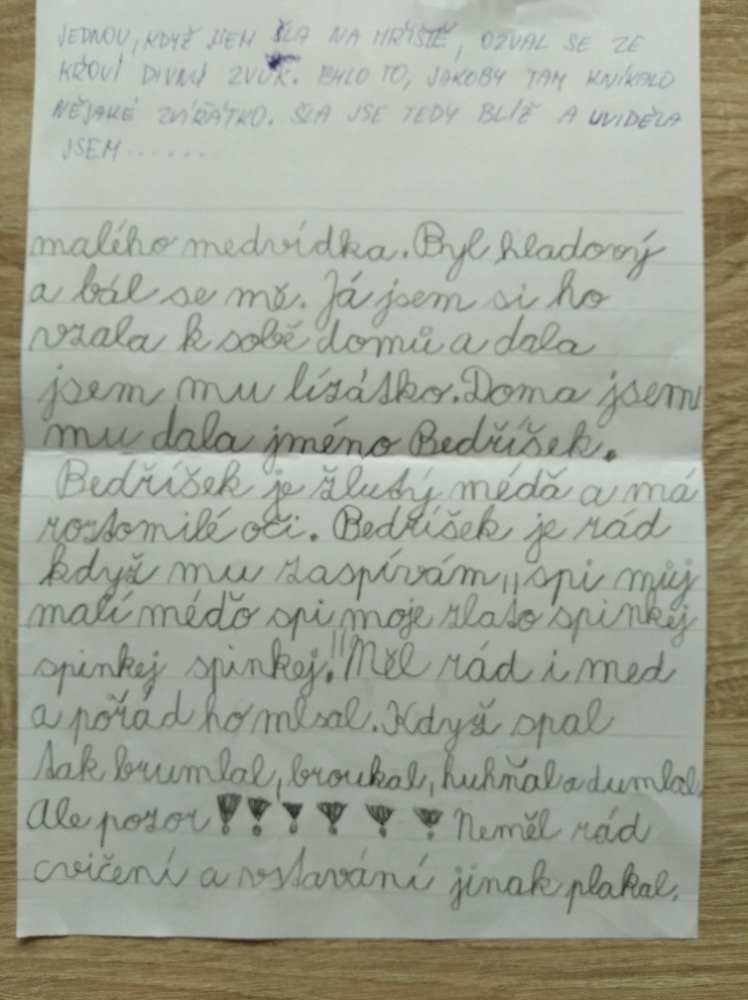 JEDNOU, KDYŽ JSEM ŠLA NA HŘIŠTĚ, OZVAL SE ZE
KŘOVÍ DIVNÝ ZVUK. BYLO TO, JAKOBY TAM KŇÍKALO
NĚJAKÉ ZVÍŘÁTKO. ŠLA JSE TEDY BLÍŽ A UVIDĚLA
JSEM........
malého medvídka. Byl hladový
a bál se mě. Já jsem si ho
vzala k sobě domů a dala
jsem mu lízátko. Doma jsem
mu dala jméno Bedříšek.
Bedříšek je žlutý méďa a má
roztomilé oči. Bedříšek je rád
když mu zaspívám "spi můj
malí méďo spi moje zlato spinkej
spinkej spinkej." Měl rád i med
a pořád ho mlsal. Když spal
tak brumlal, broukal, huhňal a dumlal.
Ale pozor!!!!!! Neměl rád
cvičení a vstavání jinak plakal.